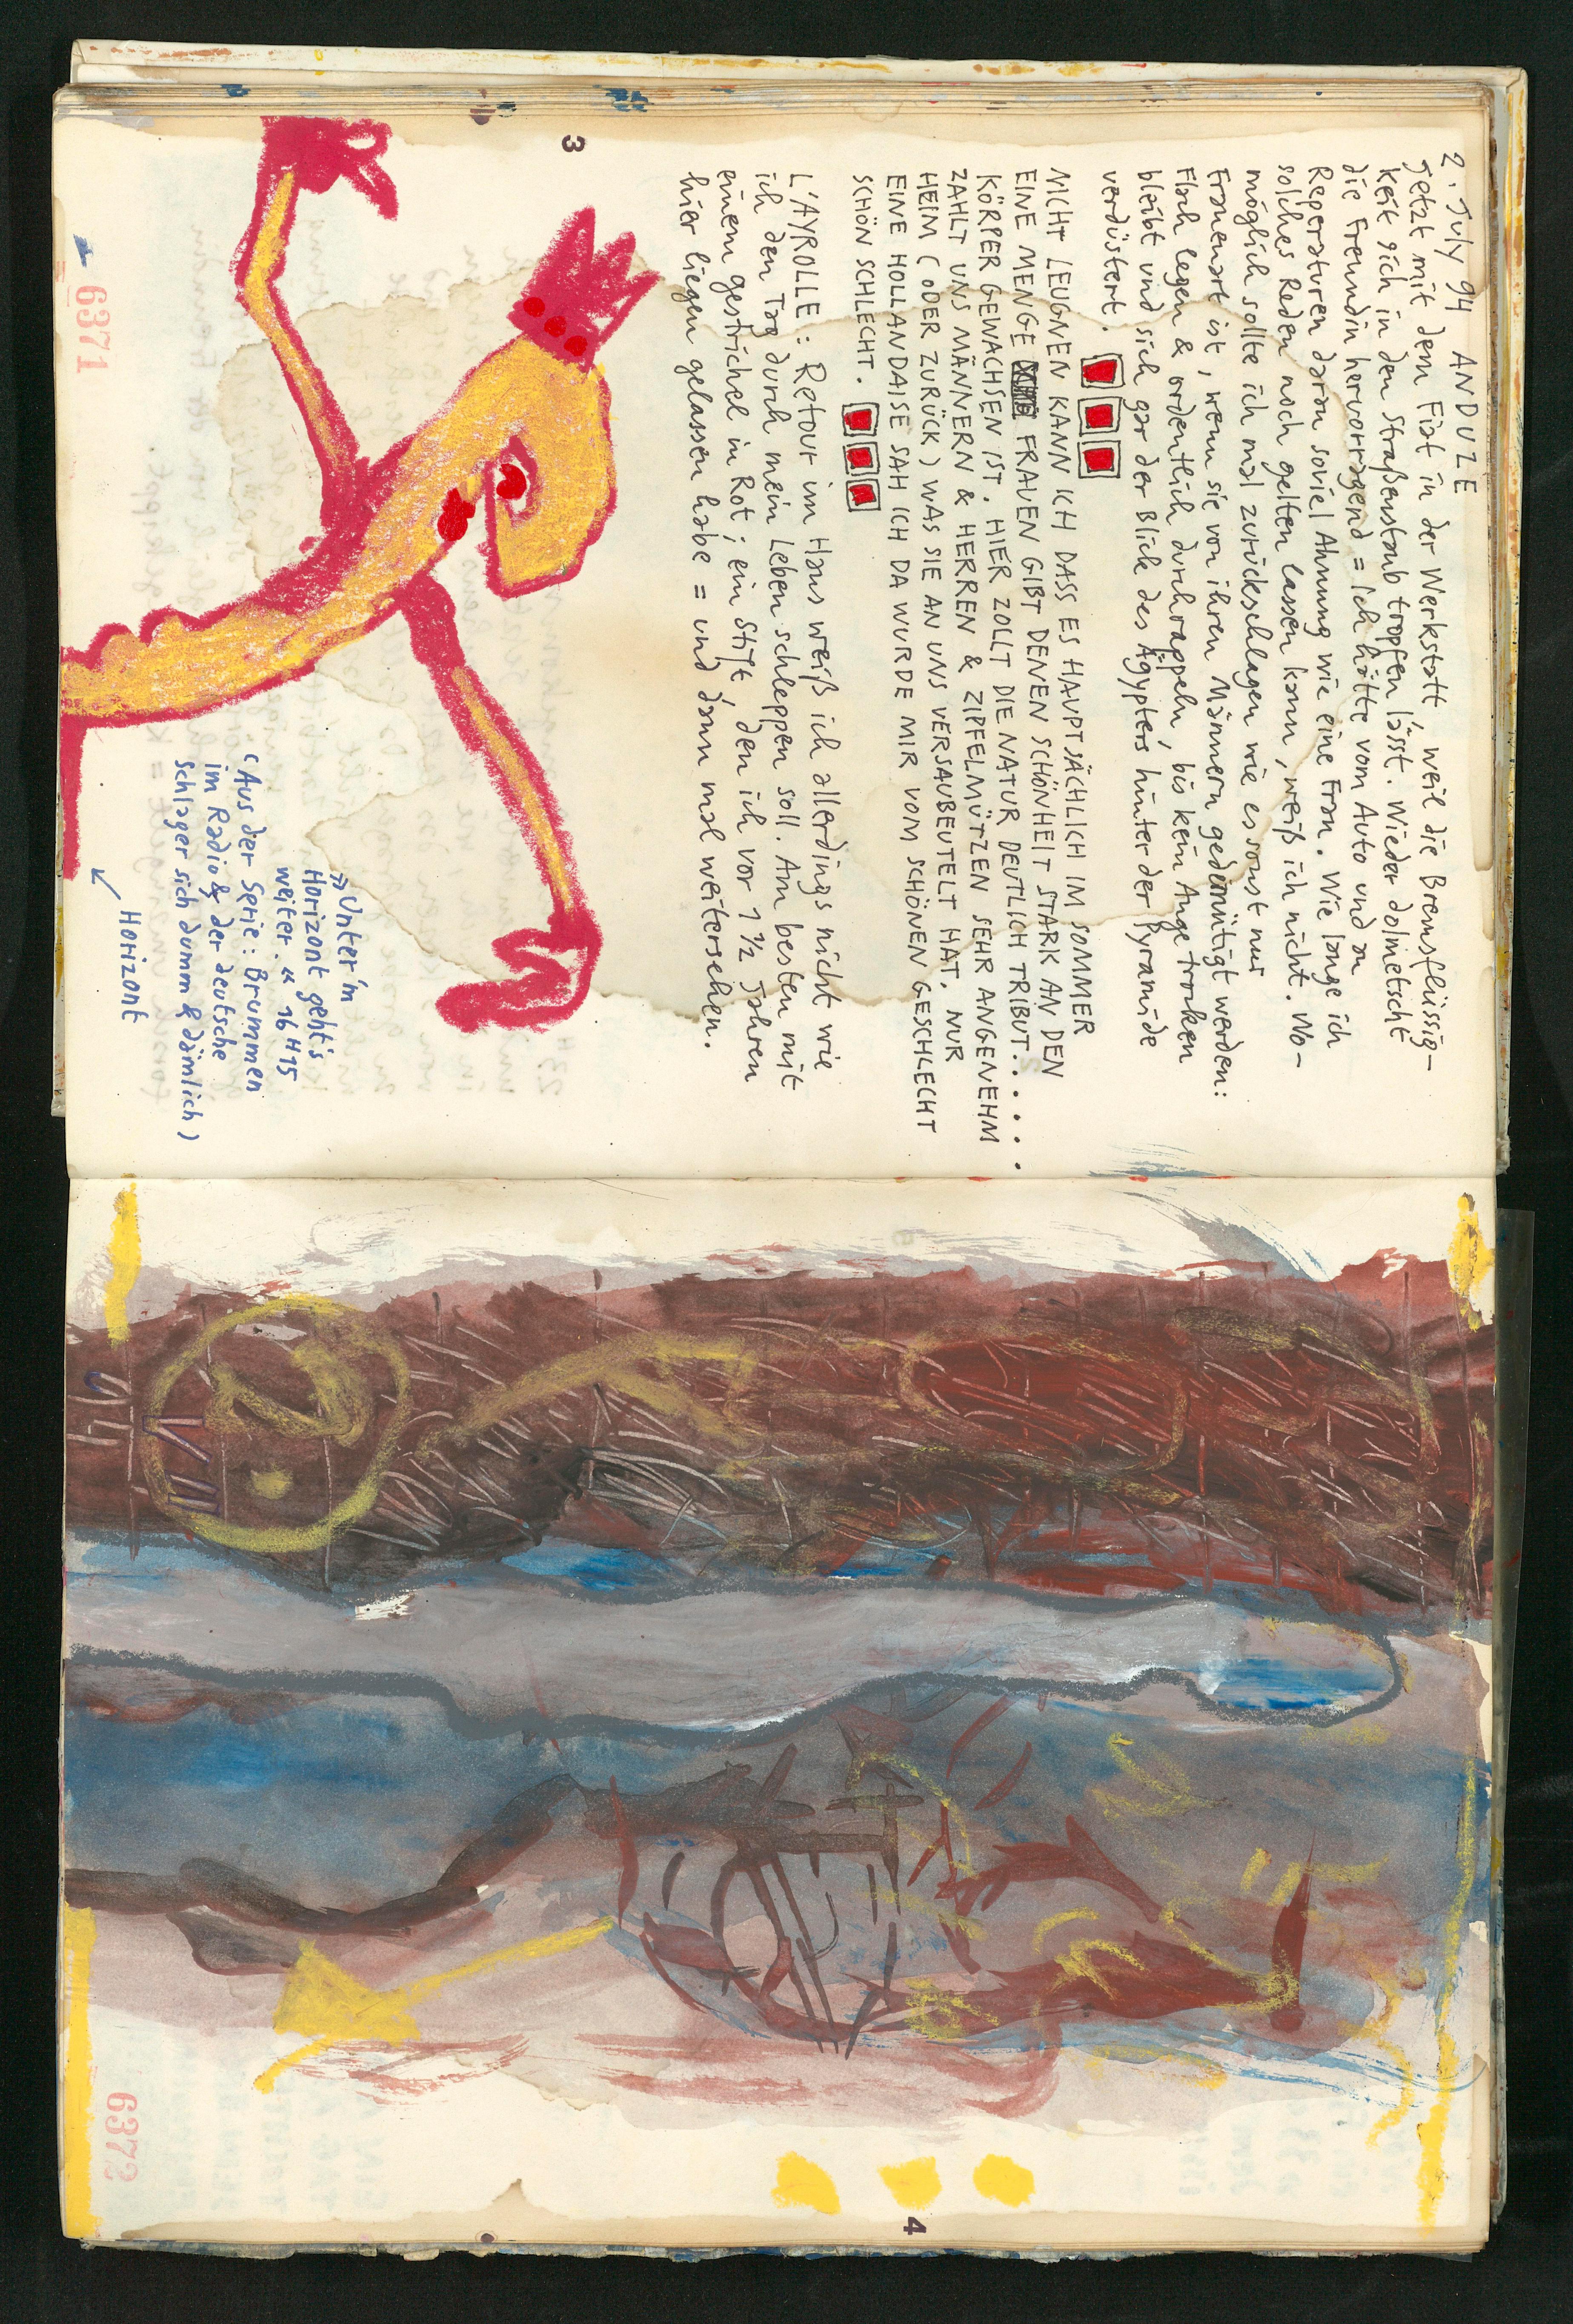 3
2. July 94 ANDUZE
Jetzt mit dem Fiat in der Werkstatt, weil die Bremsflüssig-
keit sich in den Straßenstaub tropfen lässt. Wieder dolmetscht
die Freundin hervorragend = Ich hätte vom Auto und an
Reperaturen daran soviel Ahnung wie eine Frau. Wie lange ich
solches Reden noch gelten lassen kann, weiß ich nicht. Wo-
möglich sollte ich mal zurückschlagen wie es sonst nur
Frauenart ist, wenn sie von ihren Männern gedemütigt werden:
Flach legen & ordentlich durchrappeln, bis kein Auge trocken
bleibt und sich gar der Blick des Ägypters hinter der Pyramide
verdüstert.
NICHT LEUGNEN KANN ICH DASS ES HAUPTSÄCHLICH IM SOMMER
EINE MENGE FRAUEN GIBT DENEN SCHÖNHEIT STARK AN DEN
KÖRPER GEWACHSEN IST. HIER ZOLLT DIE NATUR DEUTLICH TRIBUT......
ZAHLT UNS MÄNNERN & HERREN & ZIPFELMÜTZEN SEHR ANGENEHM
HEIM (ODER ZURÜCK) WAS SIE AN UNS VERSAUBEUTELT HAT. NUR
EINE HOLLANDAISE SAH ICH DA WURDE MIR VOM SCHÖNEN GESCHLECHT
SCHÖN SCHLECHT.
L'AYROLLE: Retour im Haus weiß ich allerdings nicht wie
ich den Tag durch mein Leben schleppen soll. Am besten mit
einem gestrichel in Rot; ein Stift, den ich vor 1 1/2 Jahren
hier liegen gelassen habe = und dann mal weitersehen.
»Unter'm
Horizont geht's
weiter.« 16H15
(Aus der Serie: Brummen
im Radio & der deutsche
Schlager sich dumm & dämlich)
Horizont
6371
4
6372